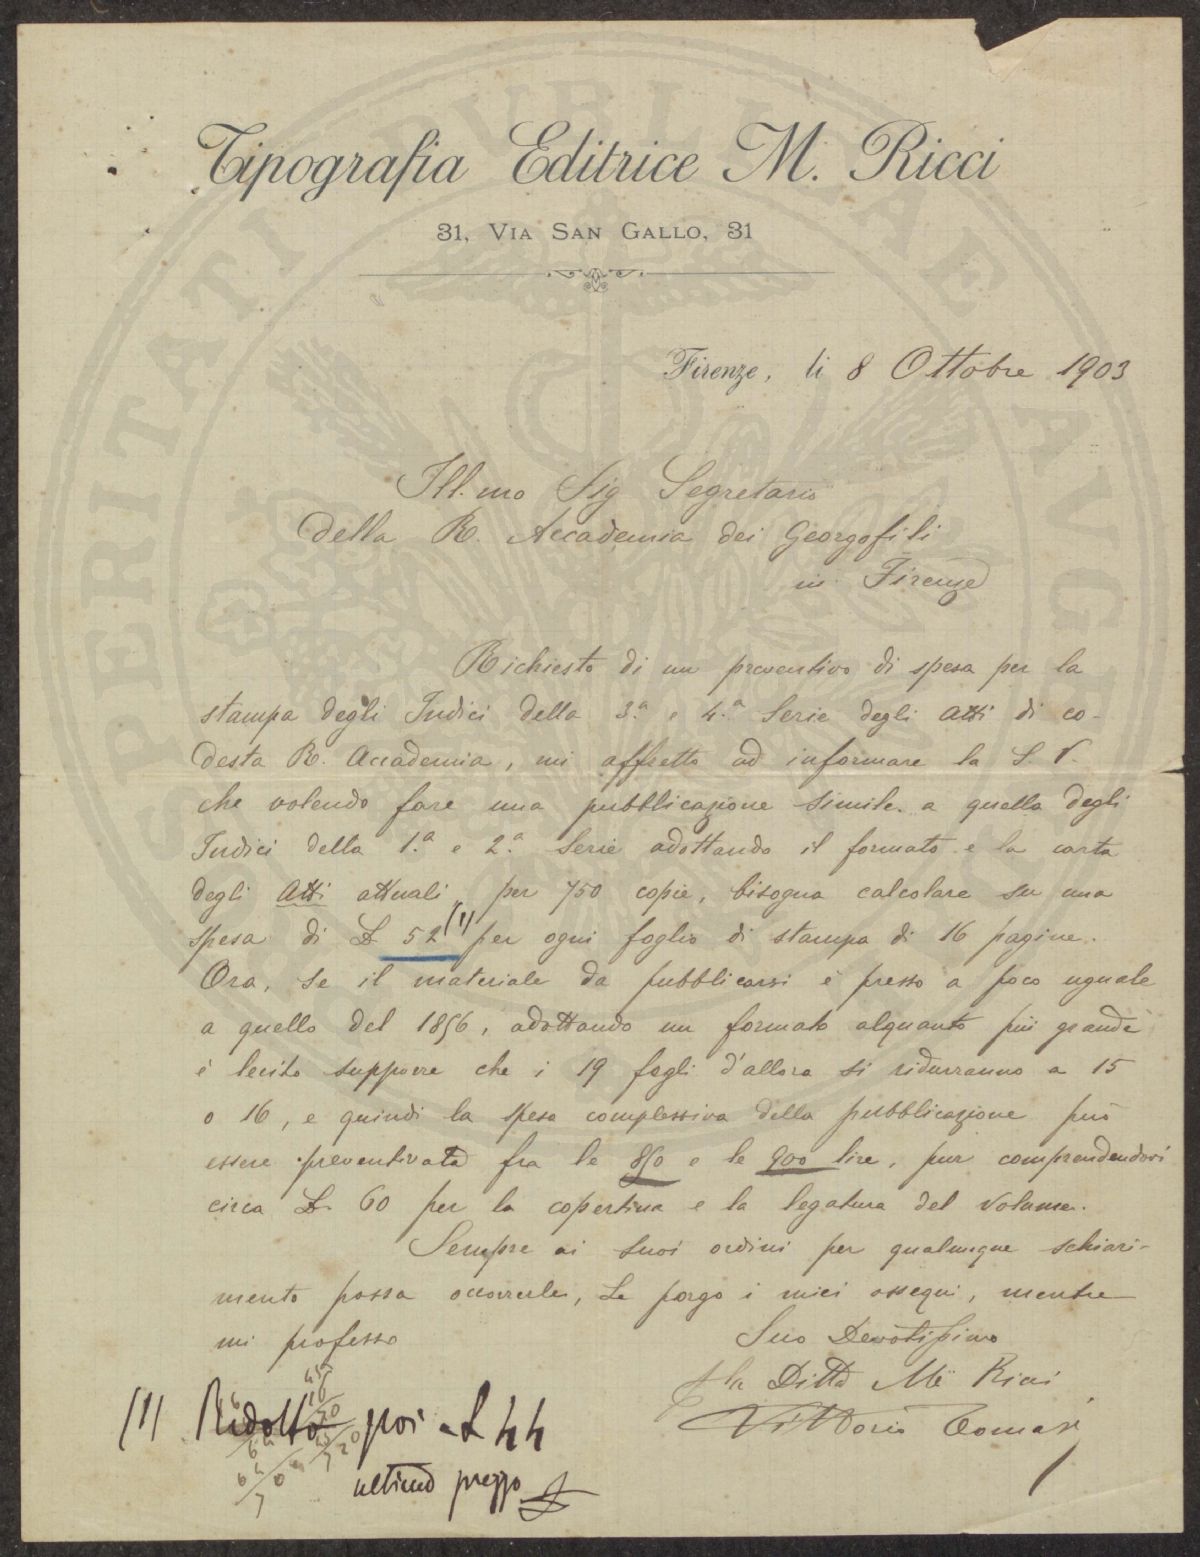 Tipografia Editrice M. Ricci
31, VIA SAN GALLO, 31
Firenze, li 8 Ottobre 1903
Ill.mo Sig Segretario
della R. Accademia dei Georgofili
in Firenze
Richiesto di un preventivo di spesa per la
stampa degli Indici della 3.a e 4.a Serie degli Atti di co-
desta R. Accademia, mi affretto ad informare la S. V.
che volendo fare una pubblicazione simile a quella degli
Indici della 1.a e 2.a Serie adottando il formato e la carta
degli Atti attuali, per 750 copie, bisogna calcolare su una
spesa di L 52 (1) per ogni foglio di stampa di 16 pagine.
Ora, se il materiale da pubblicarsi è presso a poco uguale
a quello del 1856, adottando un formato alquanto più grande
è lecito supporre che i 19 fogli d'allora si ridurranno a 15
o 16, e quindi la spesa complessiva della pubblicazione può
essere preventivata fra le 850 e le 900 lire, pur comprendendovi
circa L. 60 per la copertina e la legatura del volume.
Sempre ai Suoi ordini per qualunque schiari-
mento possa occorrerle, Le porgo i miei ossequi, mentre
mi professo
Suo Devotissimo
p la Ditta M. Ricci
Vittorio Tomasi
(1) Ridotto poi a L 44
ultimo prezzo
PROSPERITATI PUBLICAE AUGENDAE